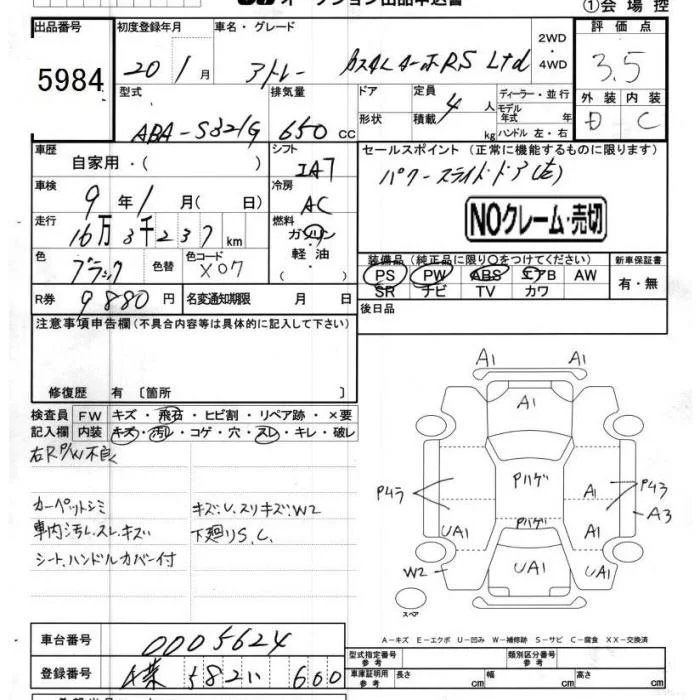 オークション出品申込書
①会場控
出品番号 初度登録年月 車名・グレード 2WD・4WD 評価点
5984 20/1月 アトレー カスタムターボRS Ltd 3.5
型式 排気量 ドア 定員 4人 ディーラー・並行 外装 内装
ABA-S321G 650cc 形状 積載 kg モデル年式 年 ハンドル 左・右 D C
車歴 自家用・( ) シフト IA7 セールスポイント (正常に機能するものに限ります)
車検 9年1月( 日) 冷房 AC パワースライドドア(左)
走行 16万3千237km 燃料 ガソリン・軽油・( ) NOクレーム・売切
色 ブラック 色替 色コード X07 装備品(純正品に限り○をつけてください) 新車保証書
PS PW ABS エアB AW 有・無
R券 9880円 名変通知期限 月 日 SR ナビ TV カワ
注意事項申告欄(不具合内容等は具体的に記入して下さい) 後日品
修復歴 有 〔箇所 〕
検査員 FW キズ・飛石・ヒビ割・リペア跡・×要
記入欄 内装 キズ・汚レ・コゲ・穴・スレ・キレ・破レ
右RP/W不良
カーペットシミ キズ.U.スリキズ.W2
車内汚レ.スレ.キズ 下廻りS.C.
シート.ハンドルカバー付
A1
A1
A1
Pハゲ
P4ラ A1 P43
Pハゲ
UA1 A1 A3
W2 UA1 UA1
スペア
A-キズ E-エクボ U-凹み W-補修跡 S-サビ C-腐食 XX-交換済
車台番号 0005624 型式指定番号 参考 類別区分番号 参考
登録番号 582い 600 車庫証明用 参考 長さ cm 幅 cm 高さ cm